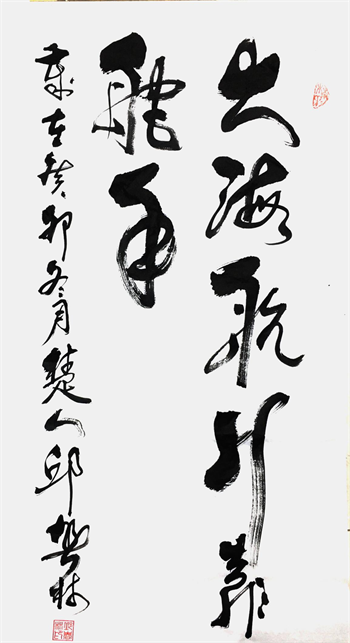 大海航行靠
舵手
岁在癸卯冬月楚人邱